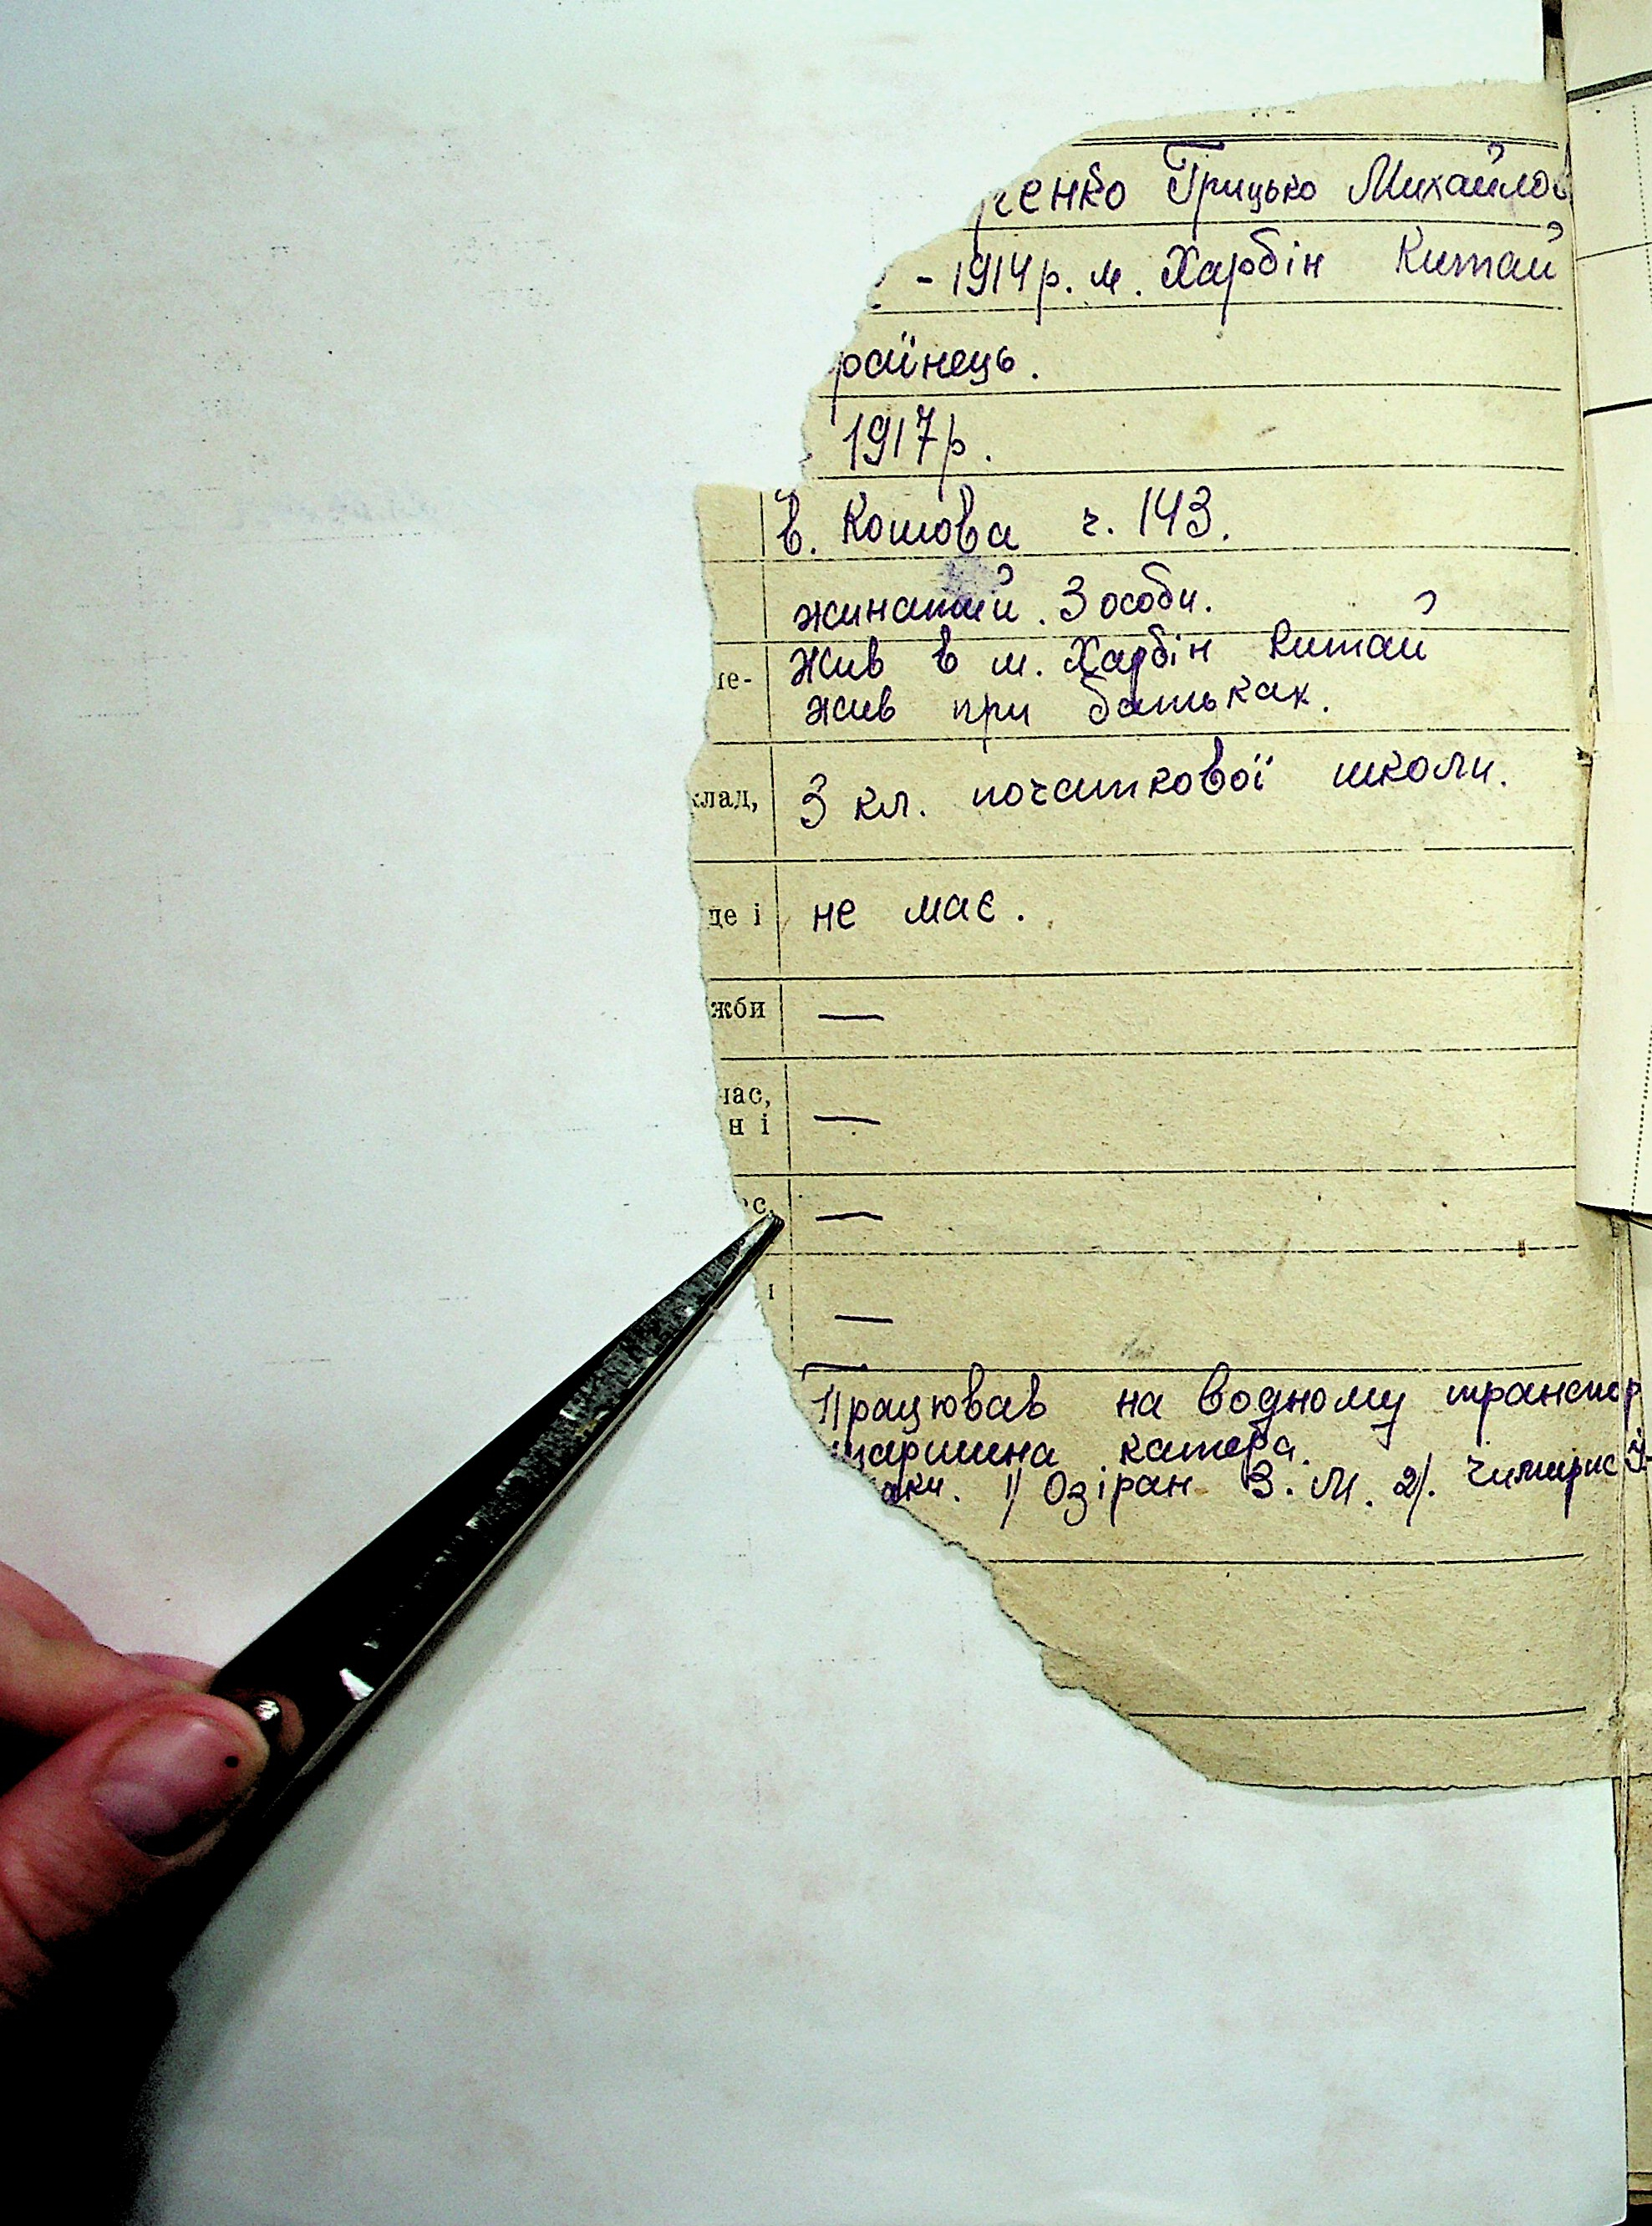 ченко Грицько Михайлов
- 1914 р. м. Харбін Китай
раїнець.
1917 р.
в. Кошова ч. 143.
жинатий. 3 особи.
Жив в м. Харбін Китай
жив при батьках.
клад, 3 кл. початкової школи.
де і не має.
жби —
час,
н і —
ас, —
і —
Працював на водному транспор
таршина катера.
аки. 1) Озіран В. М. 2).